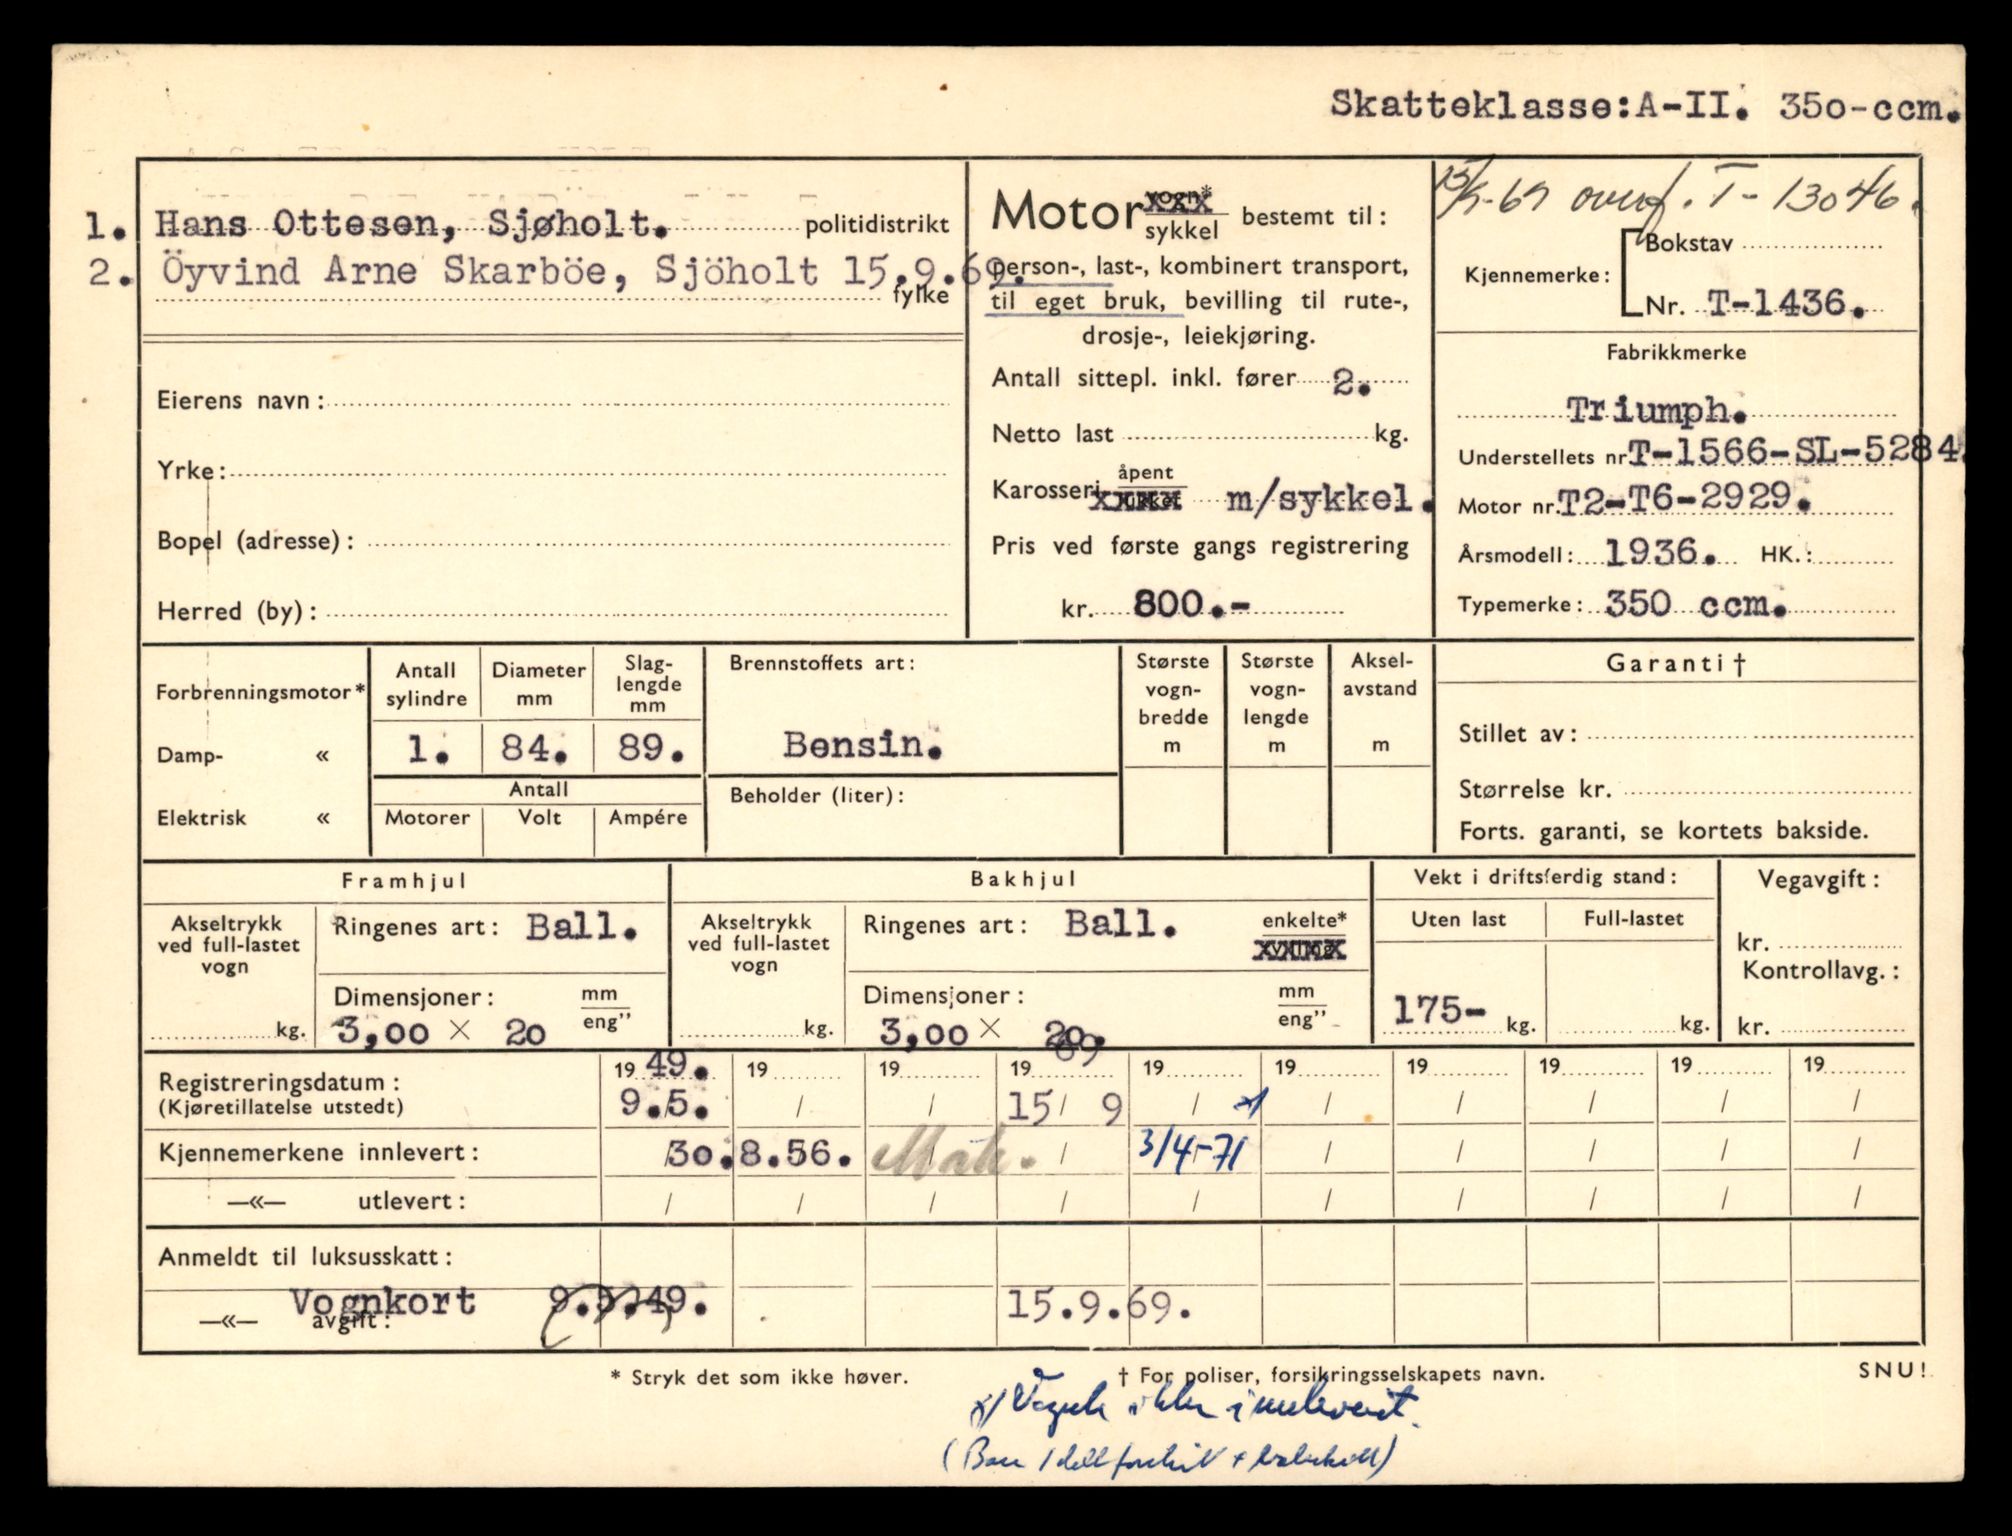 Skatteklasse:A-II. 350-ccm.
1. Hans Ottesen, Sjøholt. politidistrikt
2. Öyvind Arne Skarböe, Sjöholt 15.9.69.
fylke
Eierens navn:
Yrke:
Bopel (adresse):
Herred (by):
Motor vogn* sykkel bestemt til:
person-, last-, kombinert transport,
til eget bruk, bevilling til rute-,
drosje-, leiekjøring.
Antall sittepl. inkl. fører 2.
Netto last kg.
Karosseri åpent lukket m/sykkel.
Pris ved første gangs registrering
kr. 800.-
15/9-69 overf. T-13046.
Kjennemerke: Bokstav
Nr. T-1436.
Fabrikkmerke
Triumph.
Understellets nr. T-1566-SL-5284.
Motor nr. T2-T6-2929.
Årsmodell: 1936. HK.:
Typemerke: 350 ccm.
Forbrenningsmotor*
Damp- «
Elektrisk «
Antall sylindre Diameter mm Slag-lengde mm
1. 84. 89.
Antall
Motorer Volt Ampére
Brennstoffets art:
Bensin.
Beholder (liter):
Største vogn-bredde m
Største vogn-lengde m
Aksel-avstand m
Garanti †
Stillet av:
Størrelse kr.
Forts. garanti, se kortets bakside.
Framhjul
Akseltrykk ved full-lastet vogn
kg.
Ringenes art: Ball.
Dimensjoner: mm eng”
3,00 × 20
Bakhjul
Akseltrykk ved full-lastet vogn
kg.
Ringenes art: Ball. enkelte*
Dimensjoner: mm eng”
3,00 × 20.
Vekt i driftsferdig stand:
Uten last Full-lastet
175- kg. kg.
Vegavgift:
kr.
Kontrollavg.:
kr.
Registreringsdatum: 1949. 19 19 1969 19 19 19 19 19 19
(Kjøretillatelse utstedt) 9./5. / / 15/ 9 / x/ / / / / /
Kjennemerkene innlevert: 30.8.56. / 3/4-71 / / / / /
—«— utlevert: / / / / / / / / / /
Anmeldt til luksusskatt:
Vognkort 9.5.49. 15.9.69.
—«— avgift:
* Stryk det som ikke høver. † For poliser, forsikringsselskapets navn. SNU!
x/ Vognk ikke innlevert.
(Bare 1 dell forskilt + bakskilt)